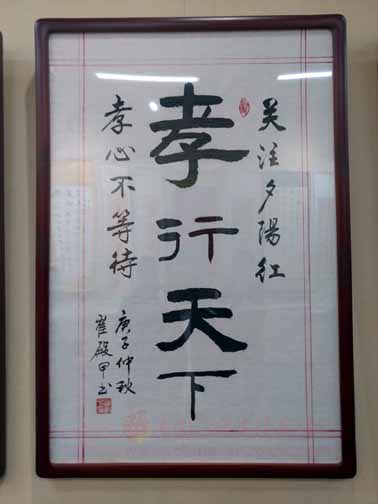 关注夕陽红
孝行天下
孝心不等待
庚子仲秋
崔殿甲书